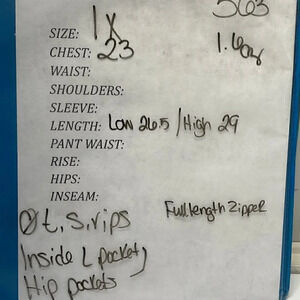 563
SIZE: 1X
CHEST: 23
WAIST:
SHOULDERS:
SLEEVE:
LENGTH: Low 26.5 / High 29
PANT WAIST:
RISE:
HIPS:
INSEAM:
Full length Zipper
Ø t, s, rips
Inside L pocket,
Hip pockets